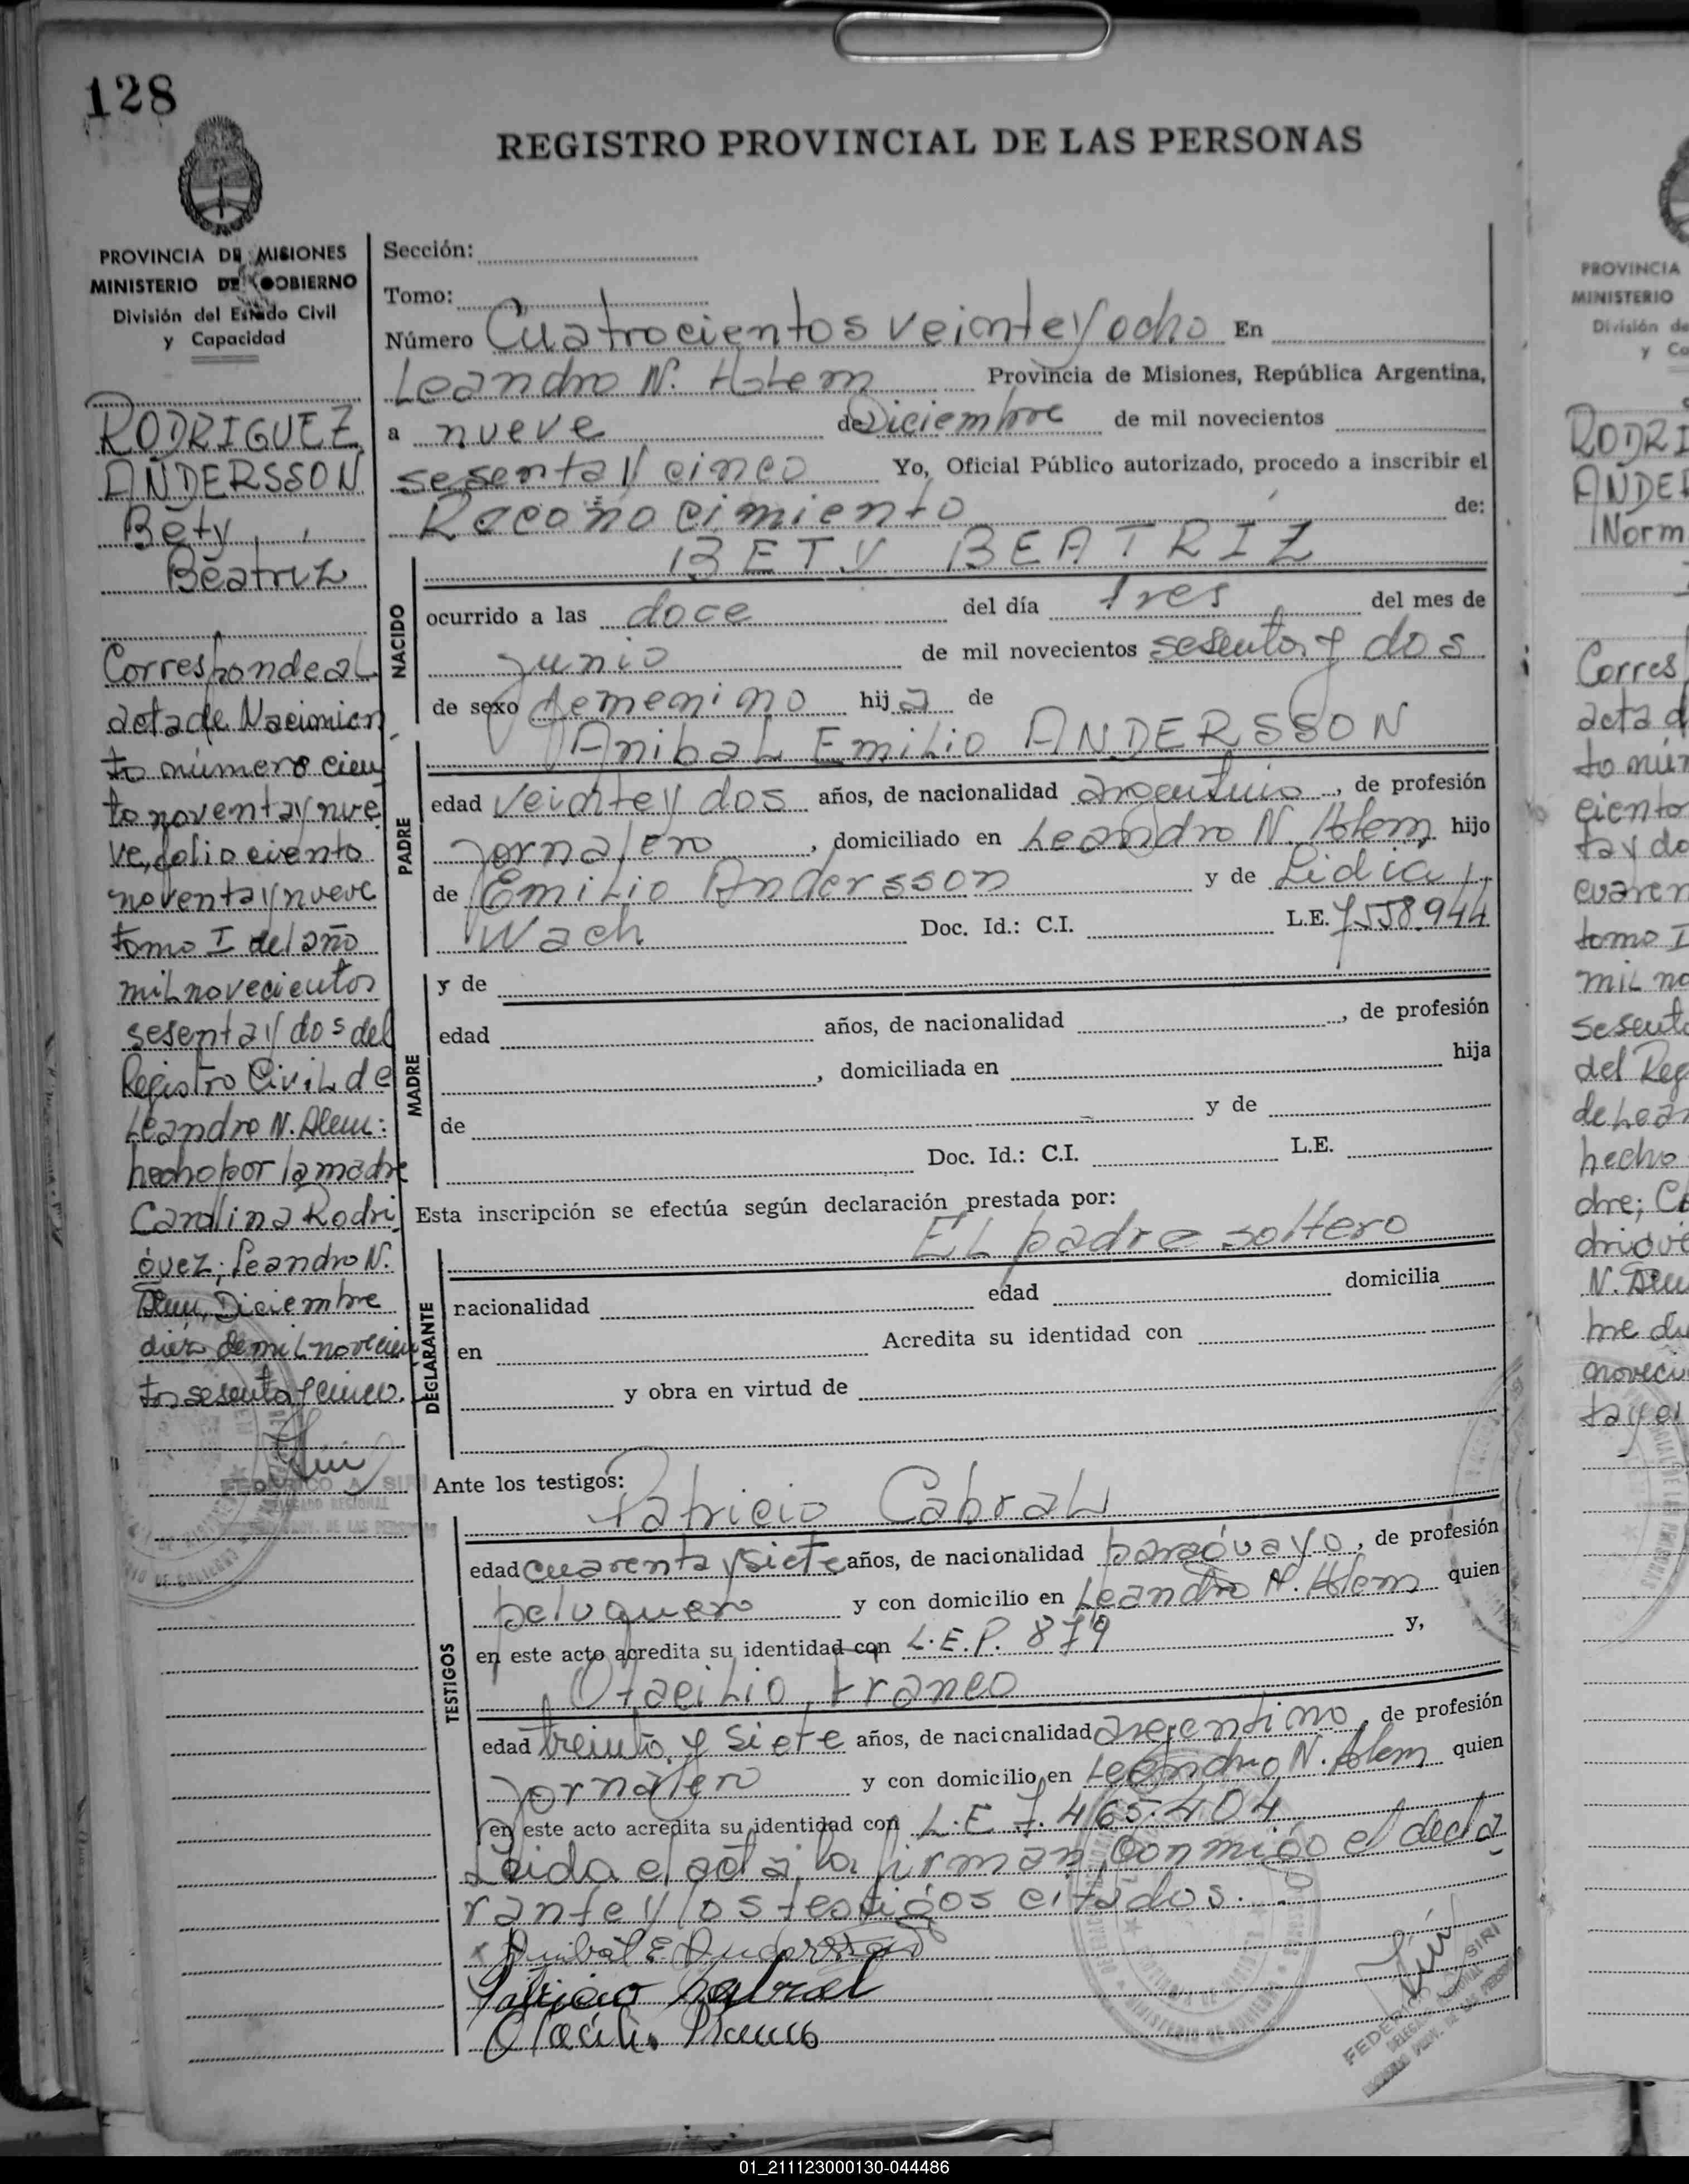 128
REGISTRO PROVINCIAL DE LAS PERSONAS
PROVINCIA DE MISIONES
MINISTERIO DE GOBIERNO
División del Estado Civil
y Capacidad
RODRIGUEZ
ANDERSSON
Bety
Beatriz
Corresponde al
acta de Nacimien
to número cien
to noventa y nue
ve, folio ciento
noventa y nueve
tomo I del año
mil novecientos
sesenta y dos del
Registro Civil de
Leandro N. Alem:
hecho por la madre
Carolina Rodri
guez; Leandro N.
Alem, Diciembre
diez de mil novecien
tos sesenta y cinco.
FEDERICO A. SIRI
DELEGADO REGIONAL
PROV. DE LAS PERSONAS
Sección:
Tomo:
Número Cuatrocientos veinte y ocho En
Leandro N. Alem Provincia de Misiones, República Argentina,
a nueve de Diciembre de mil novecientos
sesenta y cinco Yo, Oficial Público autorizado, procedo a inscribir el
Reconocimiento de:
BETY BEATRIZ
NACIDO
ocurrido a las doce del día tres del mes de
junio de mil novecientos sesenta y dos
de sexo femenino hija de
Anibal Emilio ANDERSSON
PADRE
edad veinte y dos años, de nacionalidad argentino, de profesión
jornalero, domiciliado en Leandro N. Alem hijo
de Emilio Andersson y de Lidia
Wach Doc. Id.: C.I. L.E. 7558.944
MADRE
y de
edad años, de nacionalidad , de profesión
, domiciliada en hija
de y de
Doc. Id.: C.I. L.E.
Esta inscripción se efectúa según declaración prestada por:
El padre soltero
DECLARANTE
racionalidad edad domicilia
en Acredita su identidad con
y obra en virtud de
Ante los testigos:
Patricio Cabral
TESTIGOS
edad cuarenta y siete años, de nacionalidad paraguayo, de profesión
peluquero y con domicilio en Leandro N. Alem quien
en este acto acredita su identidad con L.E.P. 879 y,
Otacilio Franco
edad treinta y siete años, de nacionalidad argentino, de profesión
jornalero y con domicilio en Leandro N. Alem quien
en este acto acredita su identidad con L.E 7.465.404
Leida el acta, la firman conmigo el decla
rante y los testigos citados.
Anibal E. Andersson
Patricio Cabral
Otacilio Franco
FEDERICO A. SIRI
DELEGADO REGIONAL
PROV. DE LAS PERSONAS
PROVINCIA
MINISTERIO
División de
y Ca
RODRI
ANDER
Norm
Corres
acta d
to núm
ciento
ta y do
cuaren
tomo I
mil no
sesenta
del Reg
de Lean
hecho
dre; Ca
drigue
N. Alem
bre di
noveci
ta y ci
01_211123000130-044486